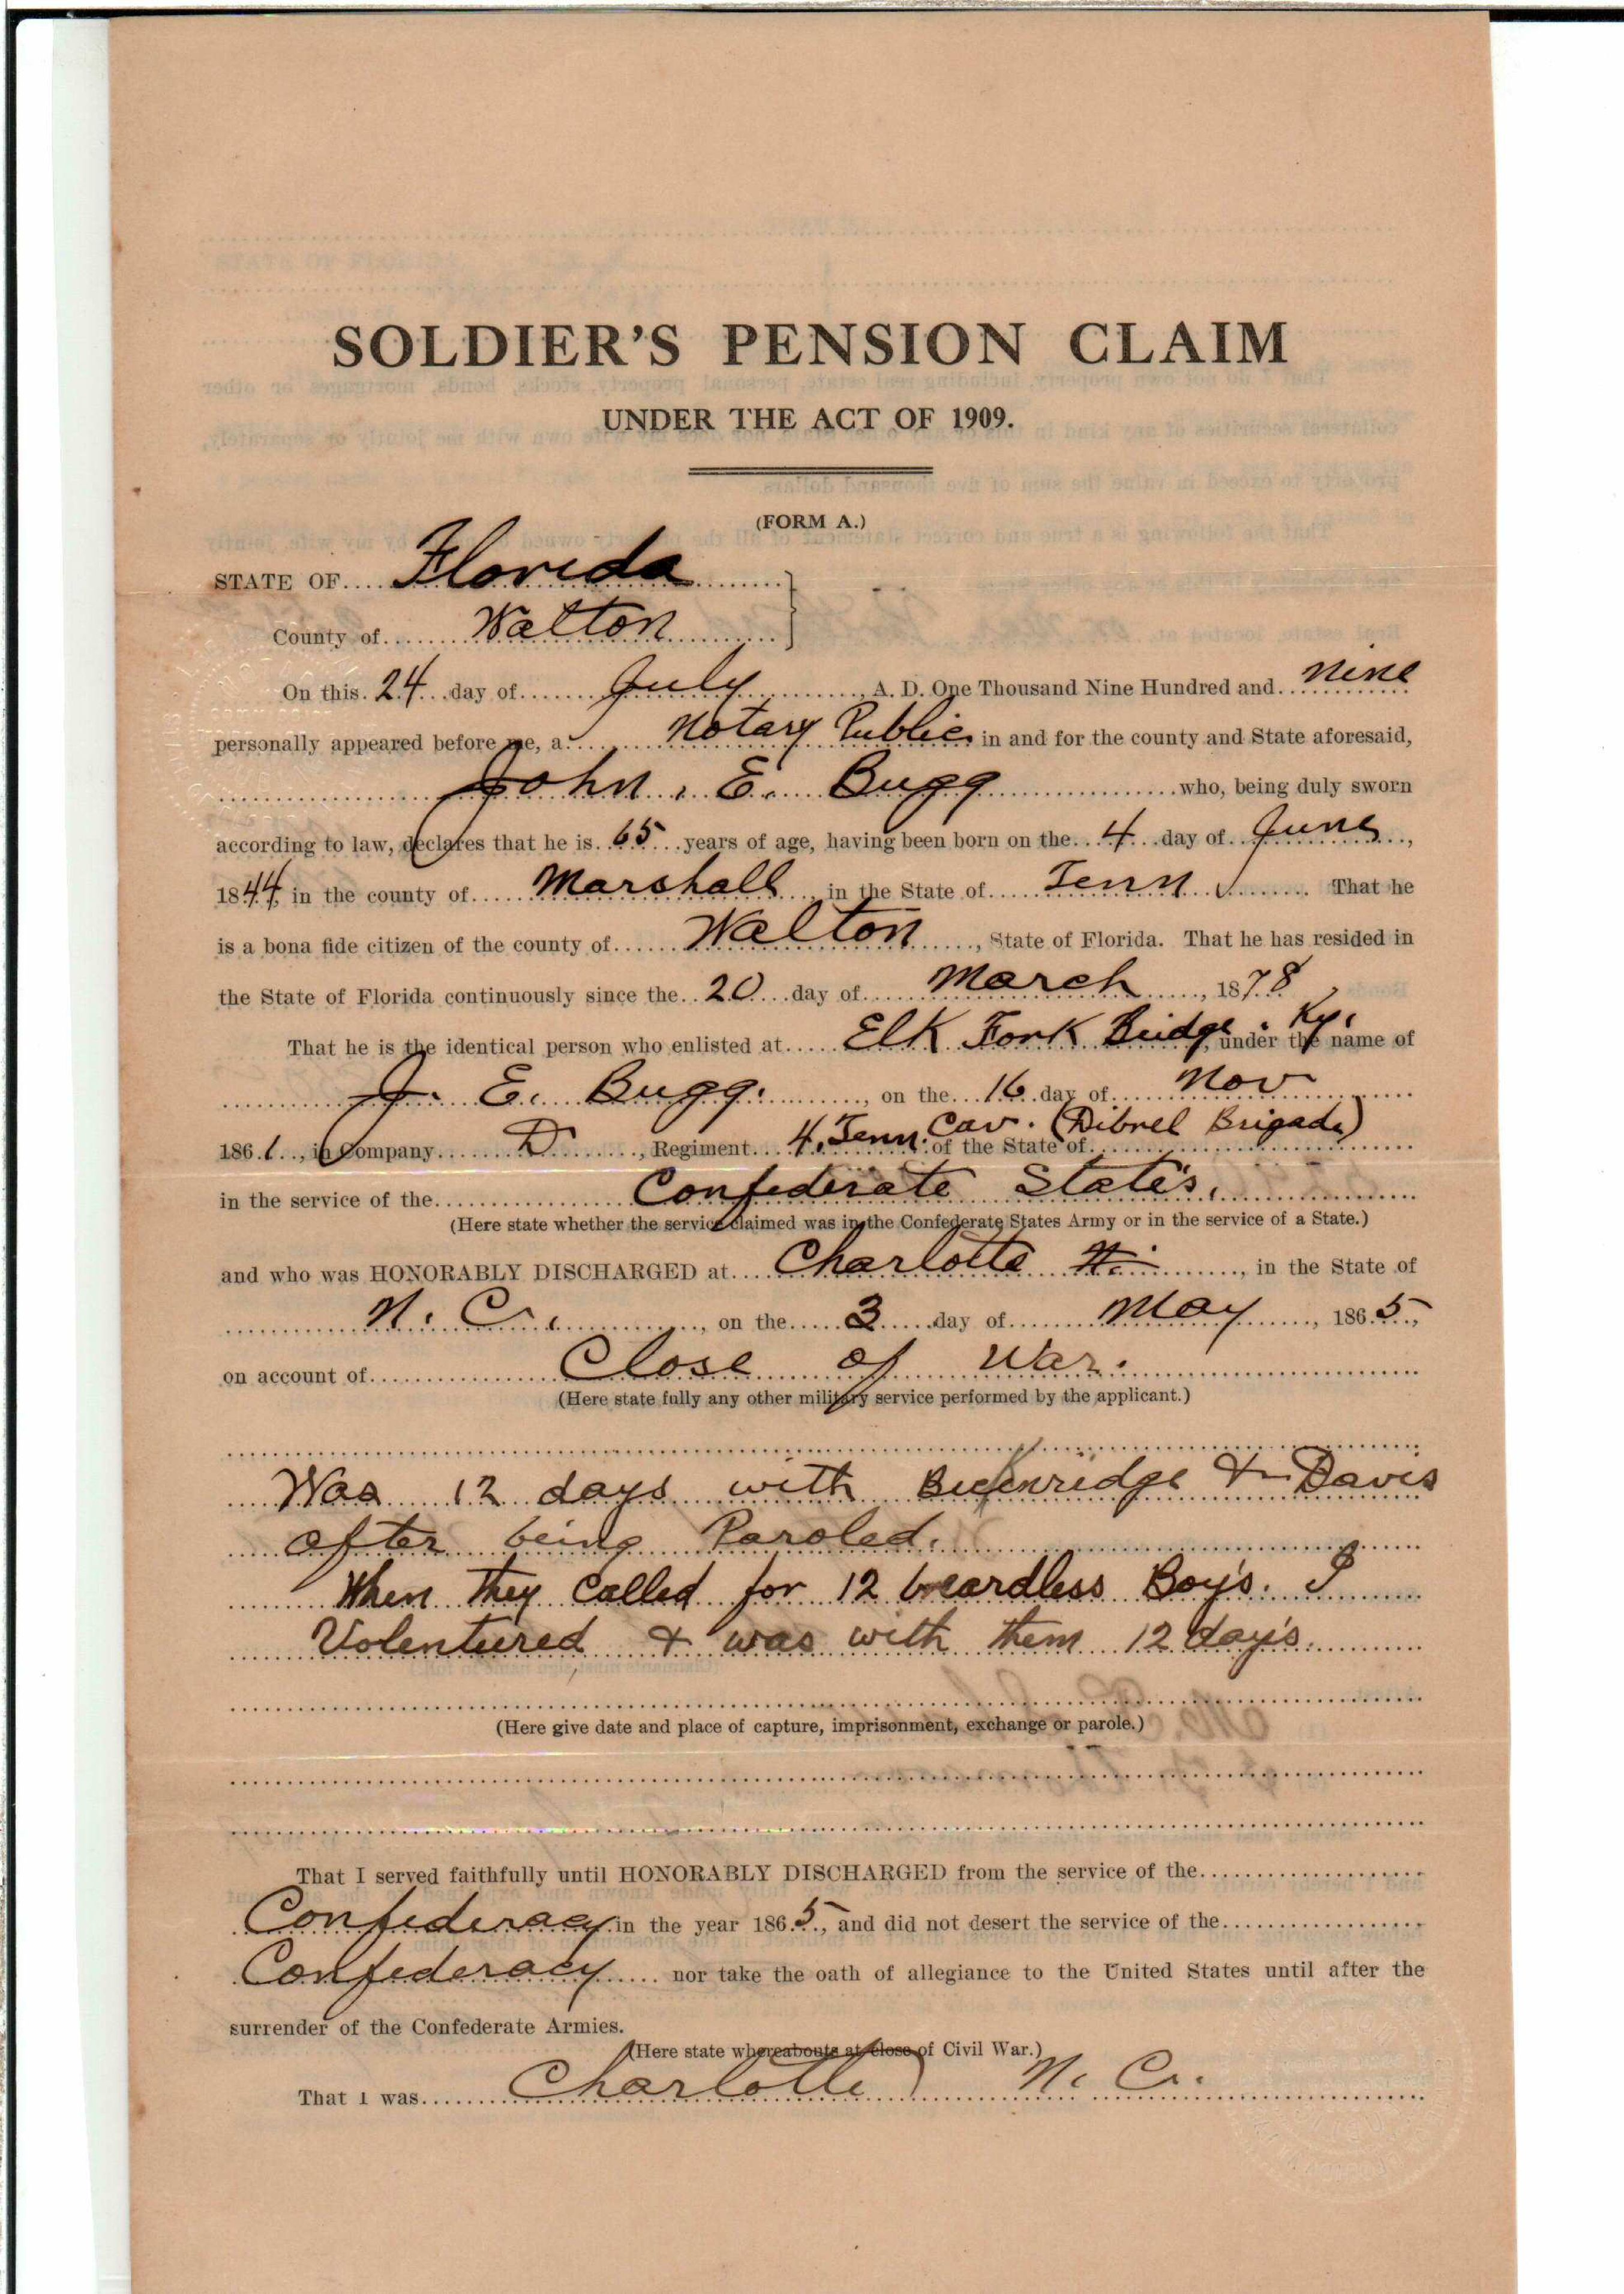 SOLDIER'S PENSION CLAIM
UNDER THE ACT OF 1909.
(FORM A.)
STATE OF.... Florida
County of....... Walton
On this. 24 day of....... July, A. D. One Thousand Nine Hundred and. nine
personally appeared before me, a. Notary Public in and for the county and State aforesaid,
John. E. Bugg who, being duly sworn
according to law, declares that he is. 65 years of age, having been born on the. 4 day of June,
1844, in the county of Marshall, in the State of Tenn. That he
is a bona fide citizen of the county of Walton, State of Florida. That he has resided in
the State of Florida continuously since the 20 day of March, 1878
That he is the identical person who enlisted at Elk Fork Bridge. Ky., under the name of
J. E. Bugg., on the 16 day of Nov
1861, in Company D, Regiment 4. Tenn. Cav. (Dibrel Brigade) of the State of
in the service of the Confederate State's.
(Here state whether the service claimed was in the Confederate States Army or in the service of a State.)
and who was HONORABLY DISCHARGED at Charlotte, in the State of
N. C., on the 3 day of May, 1865,
on account of Close of War.
(Here state fully any other military service performed by the applicant.)
Was 12 days with Beckenridge & Davis
after being Paroled.
When they called for 12 beardless Boy's. I
Volenteired & was with them 12 day's.
(Here give date and place of capture, imprisonment, exchange or parole.)
That I served faithfully until HONORABLY DISCHARGED from the service of the
Confederacy in the year 1865, and did not desert the service of the
Confederacy nor take the oath of allegiance to the United States until after the
surrender of the Confederate Armies.
(Here state whereabouts at close of Civil War.)
That I was Charlotte N. C.